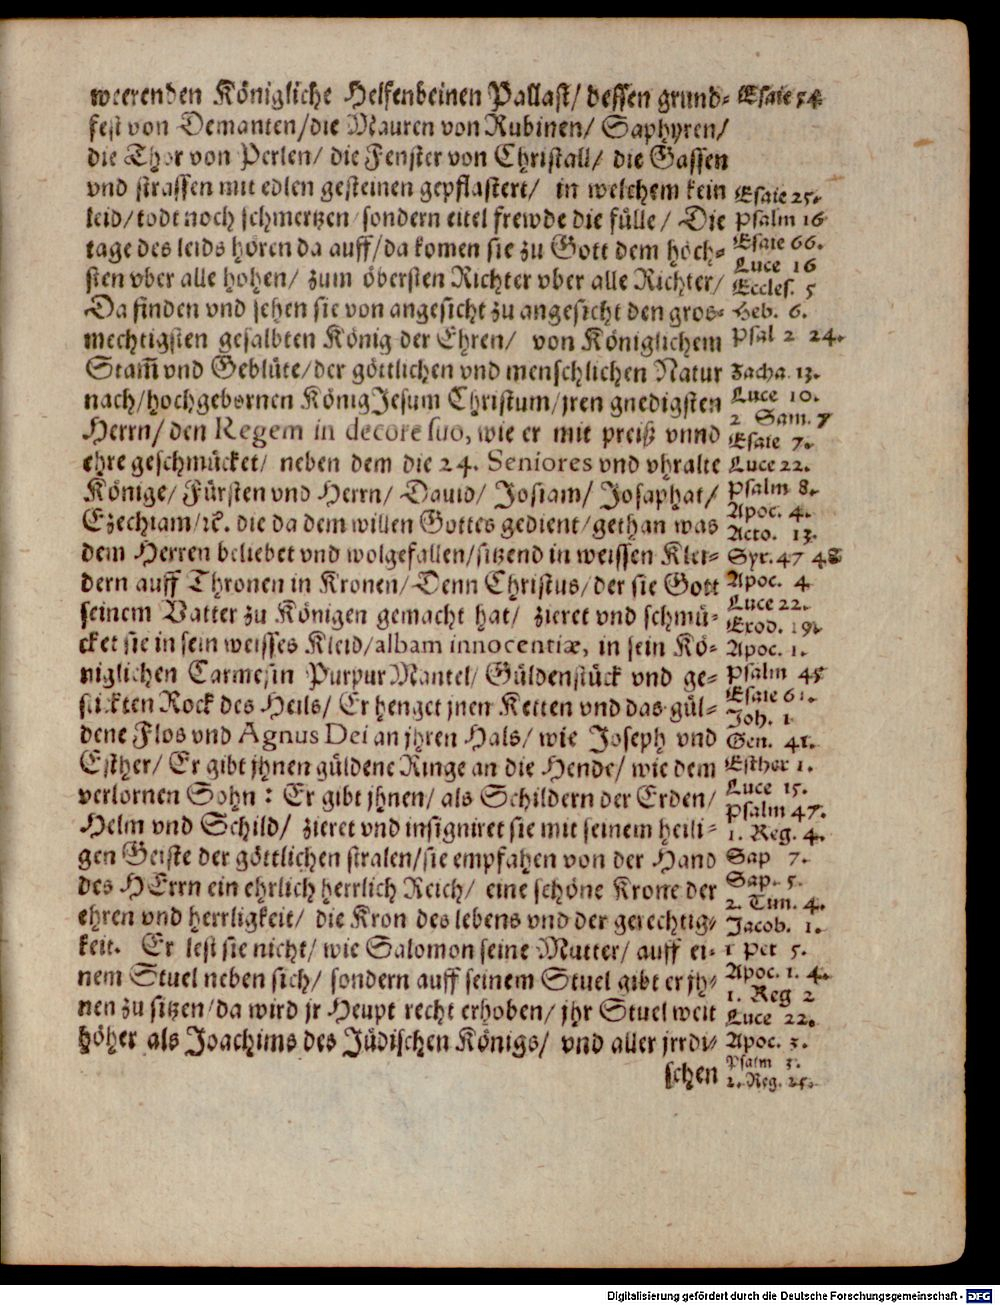 weerenden Königliche Helfenbeinen Pallast/ dessen grund-
fest von Demanten/die Mauren von Rubinen/ Saphyren/
die Thor von Perlen/ die Fenster von Christall/ die Gassen
vnd strassen mit edlen gesteinen gepflastert/ in welchem kein
leid/todt noch schmertzen sondern eitel frewde die fülle/ Die
tage des leids hören da auff/da komen sie zu Gott dem höch-
sten vber alle hohen/ zum öbersten Richter vber alle Richter/
Da finden vnd sehen sie von angesicht zu angesicht den gros-
mechtigsten gesalbten König der Ehren/ von Königlichem
Stam̃ vnd Geblüte/der göttlichen vnd menschlichen Natur
nach/hochgebornen König Jesum Christum/jren gnedigsten
Herrn/ den Regem in decore suo, wie er mit preiß vnnd
ehre geschmücket/ neben dem die 24. Seniores vnd vhralte
Könige/ Fürsten vnd Herrn/ Dauid/ Josiam/ Josaphat/
Ezechiam/ꝛc. die da dem willen Gottes gedient/gethan was
dem Herren beliebet vnd wolgefallen/sitzend in weissen Klei-
dern auff Thronen in Kronen/Denn Christus/der sie Gott
seinem Vatter zu Königen gemacht hat/ zieret vnd schmü-
cket sie in sein weisses Kleid/albam innocentiæ, in sein Kö-
niglichen Carmesin Purpur Mantel/ Güldenstück vnd ge-
stickten Rock des Heils/ Er henget jnen Ketten vnd das gül-
dene Flos vnd Agnus Dei an jhren Hals/ wie Joseph vnd
Esther/ Er gibt jhnen güldene Ringe an die Hende/ wie dem
verlornen Sohn: Er gibt jhnen/ als Schildern der Erden/
Helm vnd Schild/ zieret vnd insigniret sie mit seinem heili-
gen Geiste der göttlichen stralen/sie empfahen von der Hand
des HErrn ein ehrlich herrlich Reich/ eine schöne Krone der
ehren vnd herrligkeit/ die Kron des lebens vnd der gerechtig-
keit. Er lest sie nicht/ wie Salomon seine Mutter/ auff ei-
nem Stuel neben sich/ sondern auff seinem Stuel gibt er jh-
nen zu sitzen/da wird jr Heupt recht erhoben/ jhr Stuel weit
höher als Joachims des Jüdischen Königs/ vnd aller jrrdi-
schen
Esaie 54
Esaie 25.
Psalm 16
Esaie 66.
Luce 16
Eccles. 5
Heb. 6.
Psal 2 24.
Zacha. 13.
Luce 10.
2 Sam. 7
Esaie 7.
Luce 22.
Psalm 8.
Apoc. 4.
Acto. 13.
Syr. 47 48
Apoc. 4
Luce 22.
Exod. 19.
Apoc. 1.
Psalm 45
Esaie 61.
Joh. 1
Gen. 41.
Esther 1.
Luce 15.
Psalm 47.
1. Reg. 4.
Sap 7.
Sap. 5.
2. Tim. 4.
Jacob. 1.
1 Pet 5.
Apoc. 1. 4.
1. Reg 2
Luce 22.
Apoc. 3.
Psalm 3.
2. Reg. 25.
Digitalisierung gefördert durch die Deutsche Forschungsgemeinschaft - DFG